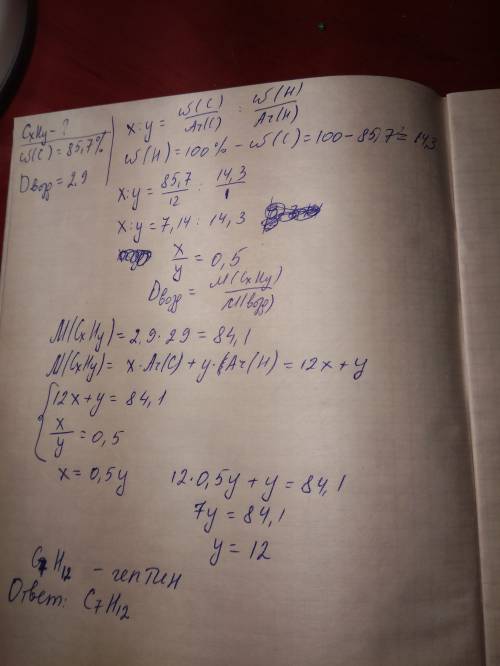 CxHy - ?
ω(C) = 85,7%
Dвозд = 2,9
x:y = ω(C)/Ar(C) : ω(H)/Ar(H)
ω(H) = 100% - ω(C) = 100 - 85,7 = 14,3
x:y = 85,7/12 : 14,3/1
x:y = 7,14 : 14,3
x/y = 0,5
Dвозд = M(CxHy)/M(возд)
M(CxHy) = 2,9·29 = 84,1
M(CxHy) = x·Ar(C) + y·Ar(H) = 12x + y
12x + y = 84,1
x/y = 0,5
x = 0,5y 12·0,5y + y = 84,1
7y = 84,1
y = 12
C7H12 - гептин
Ответ: C7H12